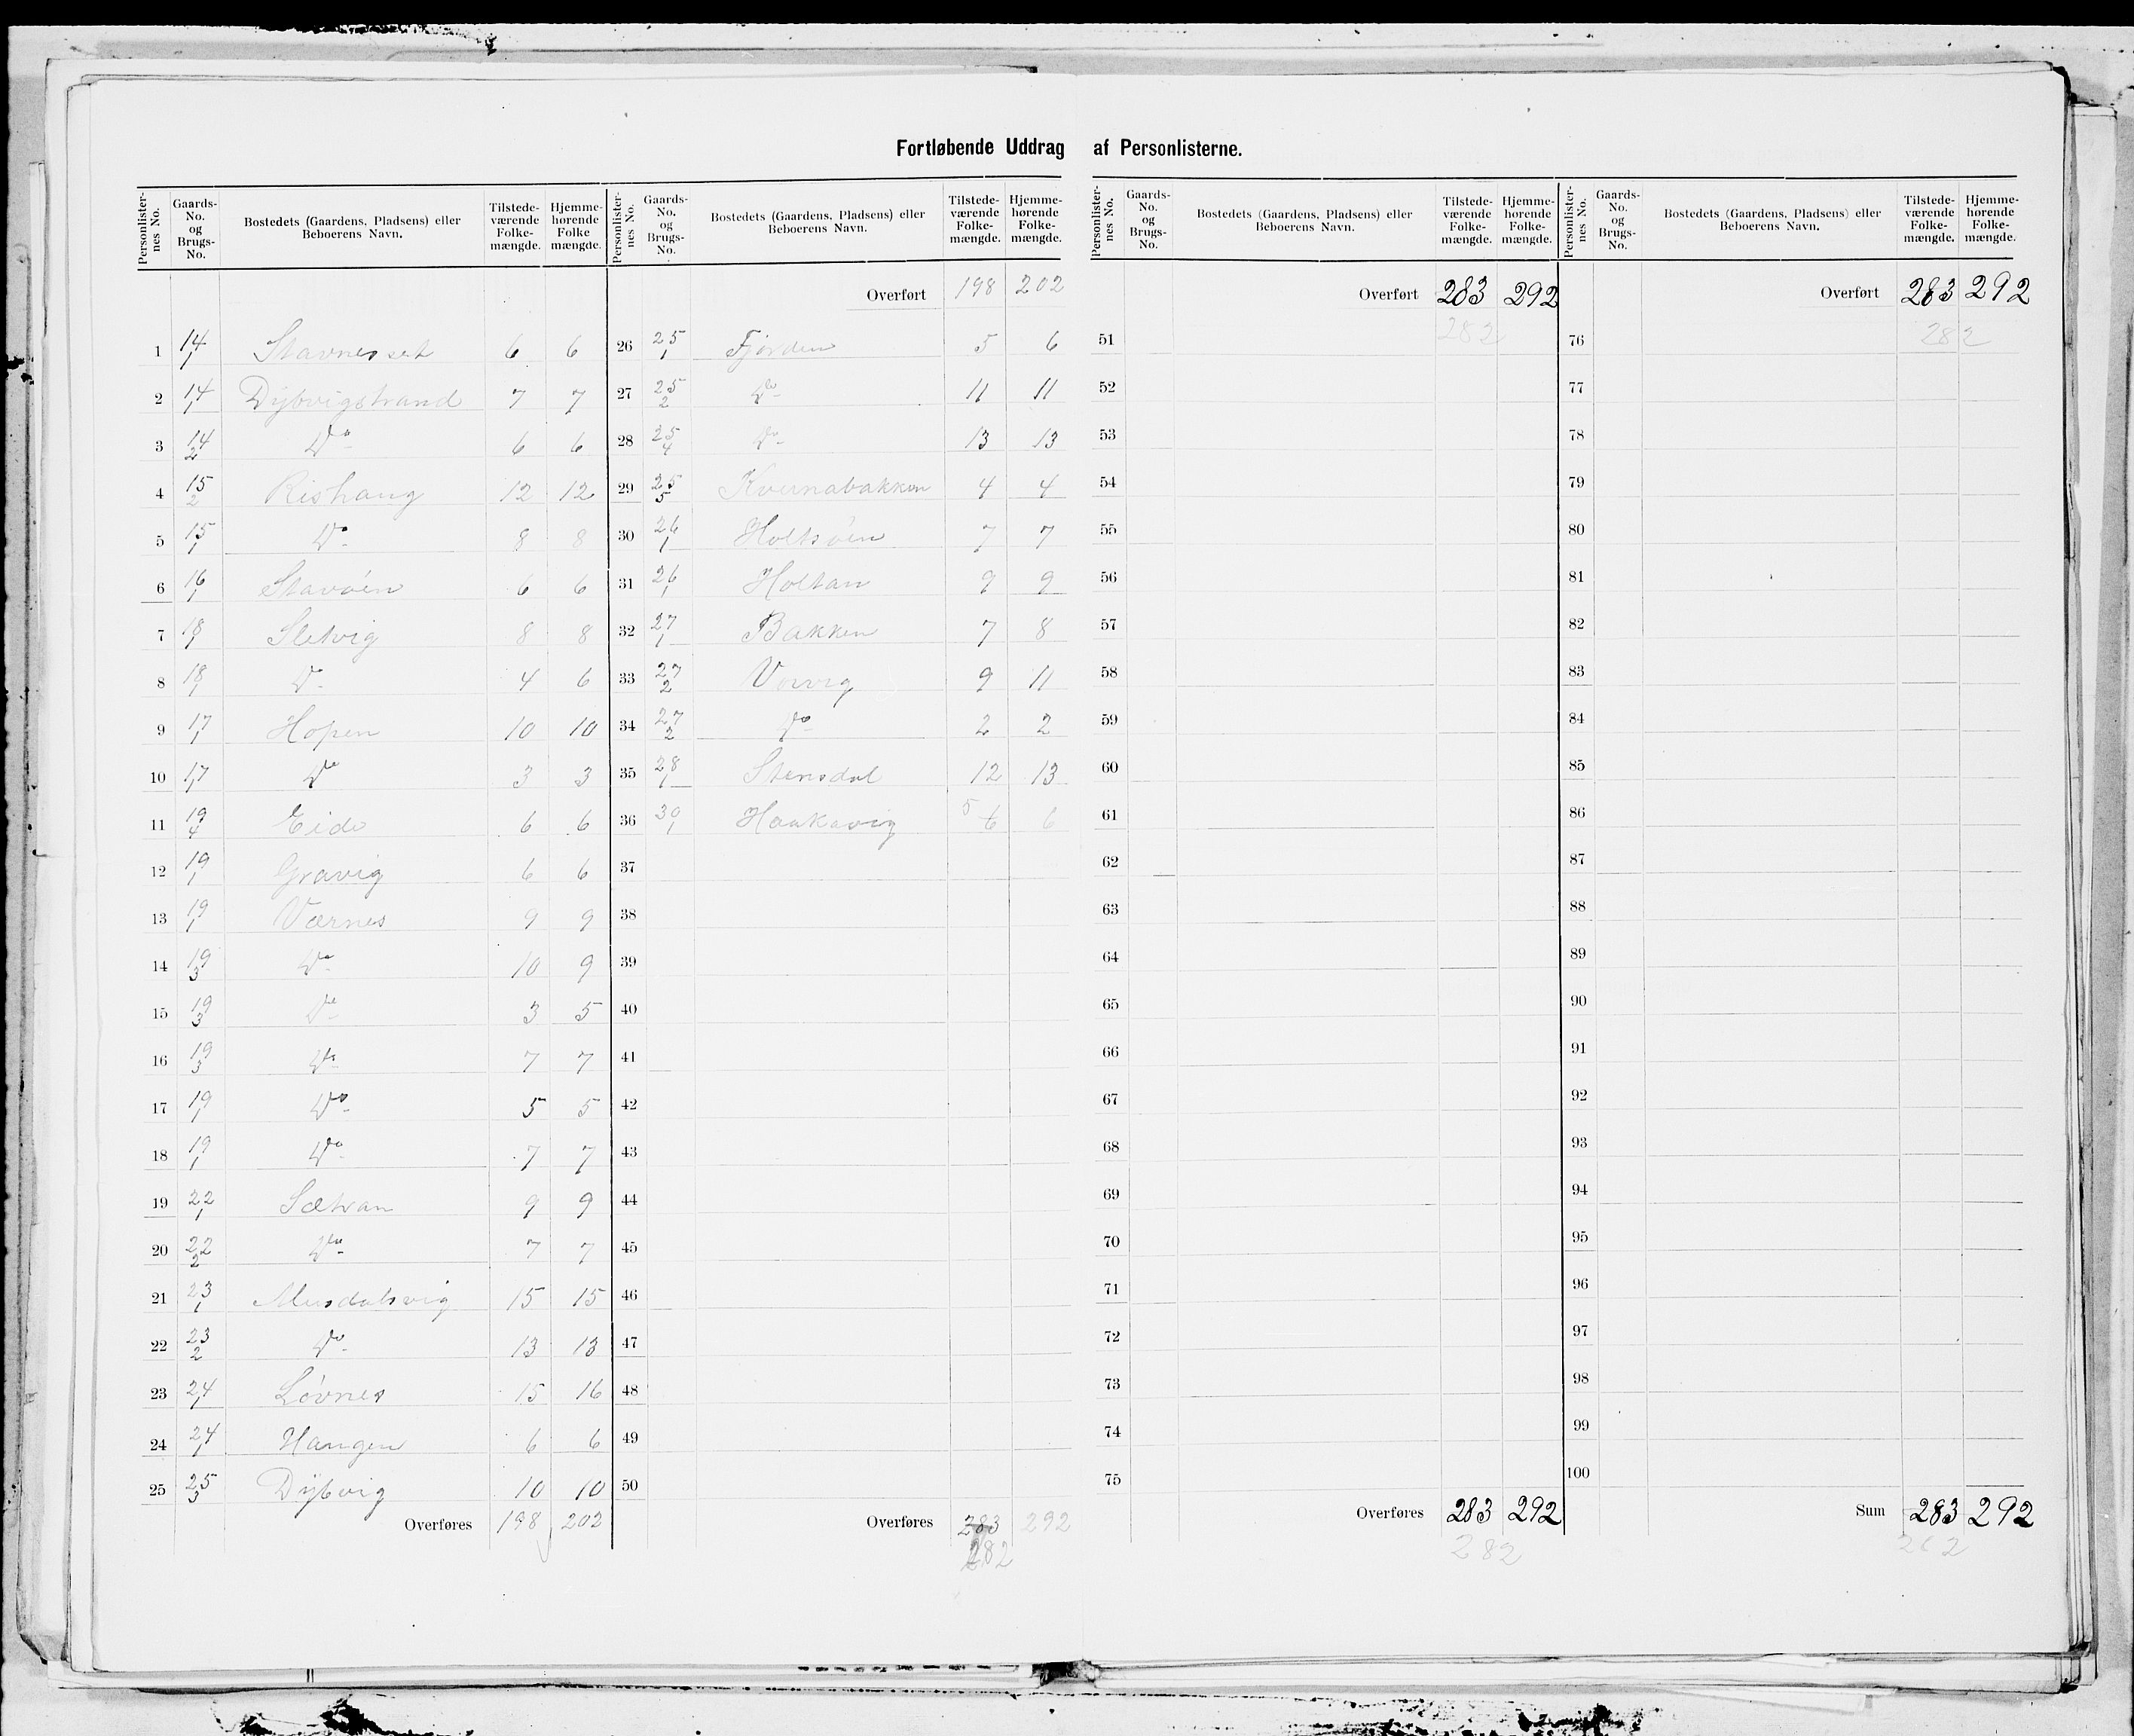 Fortløbende Uddrag af Personlisterne.
Personlister-nes No. | Gaards-No. og Brugs-No. | Bostedets (Gaardens, Pladsens) eller Beboerens Navn. | Tilstede-værende Folke-mængde. | Hjemme-hørende Folke mængde.
1 14/1 Stavnesset 6 6
2 14/1 Dybvigstrand 7 7
3 14/2 Do 6 6
4 15/2 Rishaug 12 12
5 15/1 Do 8 8
6 16/1 Stavøen 6 6
7 18/1 Sletvig 8 8
8 18/1 Do 4 6
9 17/1 Hopen 10 10
10 17/1 Do 3 3
11 19/4 Eide 6 6
12 19/1 Gravig 6 6
13 19/1 Værnes 9 9
14 19/3 Do 10 9
15 19/3 Do 3 5
16 19/3 Do 7 7
17 19/1 Do 5 5
18 19/1 Do 7 7
19 22/1 Sætran 9 9
20 22/2 Do 7 7
21 23/1 Musdalsvig 15 15
22 23/2 Do 13 13
23 24/1 Løvnes 15 16
24 24/1 Haugen 6 6
25 25/3 Dybvig 10 10
Overføres 198 202
Personlister-nes No. | Gaards-No. og Brugs-No. | Bostedets (Gaardens, Pladsens) eller Beboerens Navn. | Tilstede-værende Folke-mængde. | Hjemme-hørende Folke-mængde.
Overført 198 202
26 25/1 Fjorden 5 6
27 25/2 Do 11 11
28 25/4 Do 13 13
29 25/5 Kvernabakken 4 4
30 26/1 Holtsøen 7 7
31 26/1 Holtan 9 9
32 27/1 Bakken 7 8
33 27/2 Vorvig 9 11
34 27/2 Do 2 2
35 28/1 Stensdal 12 13
36 30/1 Haukavig 5 6 6
37
38
39
40
41
42
43
44
45
46
47
48
49
50
Overføres 283 292
282
Personlister-nes No. | Gaards-No. og Brugs-No. | Bostedets (Gaardens, Pladsens) eller Beboerens Navn. | Tilstede-værende Folke-mængde. | Hjemme-hørende Folke-mængde.
Overført 283 292
282
51
52
53
54
55
56
57
58
59
60
61
62
63
64
65
66
67
68
69
70
71
72
73
74
75
Overføres 283 292
282
Personlister-nes No. | Gaards-No. og Brugs-No. | Bostedets (Gaardens, Pladsens) eller Beboerens Navn. | Tilstede-værende Folke-mængde. | Hjemme-hørende Folke-mængde.
Overført 283 292
282
76
77
78
79
80
81
82
83
84
85
86
87
88
89
90
91
92
93
94
95
96
97
98
99
100
Sum 283 292
282